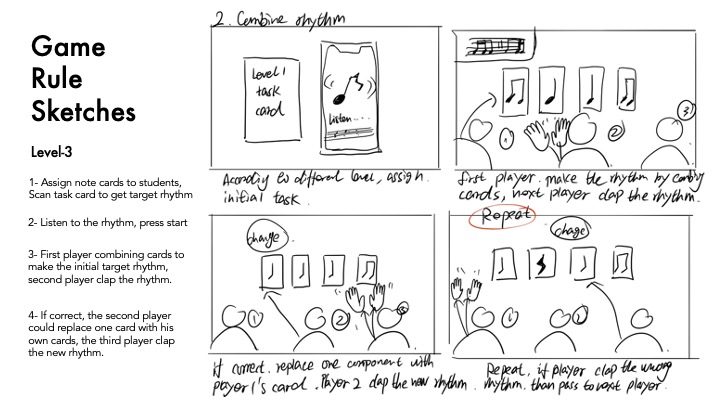 Game
Rule
Sketches
Level-3
1- Assign note cards to students,
Scan task card to get target rhythm
2- Listen to the rhythm, press start
3- First player combining cards to
make the initial target rhythm,
second player clap the rhythm.
4- If correct, the second player
could replace one card with his
own cards, the third player clap
the new rhythm.
2. Combine rhythm
Level 1
task
card
listen....
According to different level, assign
initial task.
1
2
3
first player. make the rhythm by combing
cards, next player clap the rhythm.
change
1
2
3
if correct. replace one component with
player 1's card. Player 2 clap the new rhythm.
Repeat
chage
1
2
Repeat, if player clap the wrong
rhythm. than pass to next player.